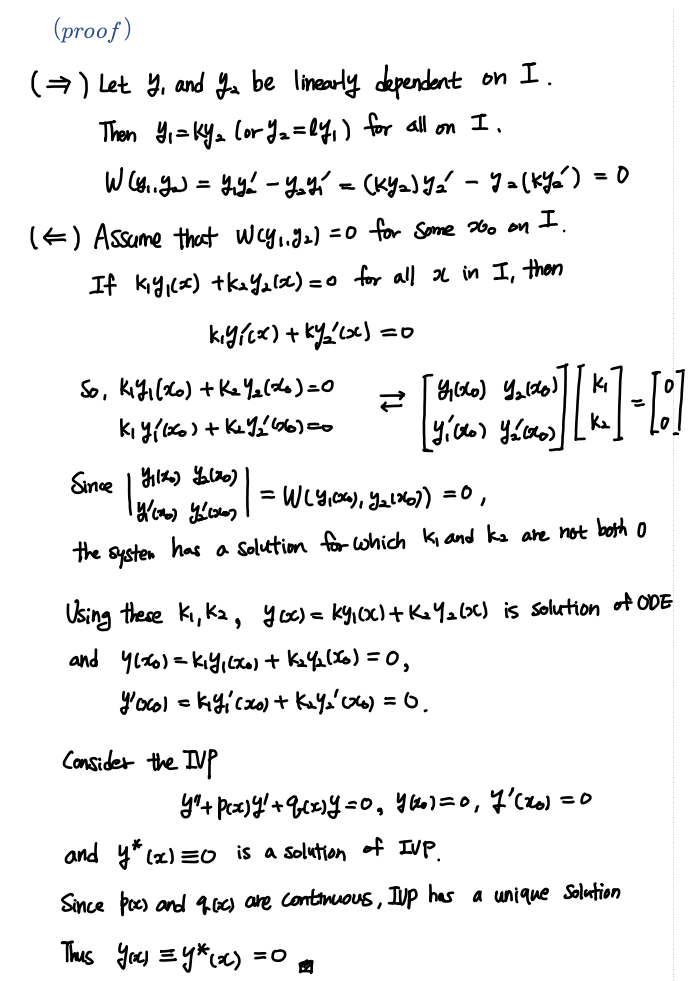 (proof)
(⇒) Let y₁ and y₂ be linearly dependent on I.
Then y₁=ky₂ (or y₂=ly₁) for all on I.
W(y₁,y₂) = y₁y₂′ - y₂y₁′ = (ky₂)y₂′ - y₂(ky₂′) = 0
(⇐) Assume that W(y₁,y₂)=0 for some x₀ on I.
If k₁y₁(x) + k₂y₂(x)=0 for all x in I, then
k₁y₁′(x) + ky₂′(x) = 0
So, k₁y₁(x₀) + k₂y₂(x₀)=0 ⇄ [y₁(x₀) y₂(x₀)] [k₁] = [0]
k₁y₁′(x₀) + k₂y₂′(x₀)=0 [y₁′(x₀) y₂′(x₀)] [k₂] [0]
Since |y₁(x₀) y₂(x₀)| = W(y₁(x₀), y₂(x₀)) = 0,
|y₁′(x₀) y₂′(x₀)|
the system has a solution for which k₁ and k₂ are not both 0
Using these k₁, k₂, y(x) = ky₁(x) + k₂y₂(x) is solution of ODE
and y(x₀) = k₁y₁(x₀) + k₂y₂(x₀) = 0,
y′(x₀) = k₁y₁′(x₀) + k₂y₂′(x₀) = 0.
Consider the IVP
y″ + p(x)y′ + q(x)y = 0, y(x₀)=0, y′(x₀) = 0
and y*(x) ≡ 0 is a solution of IVP.
Since p(x) and q(x) are continuous, IVP has a unique solution
Thus y(x) ≡ y*(x) = 0